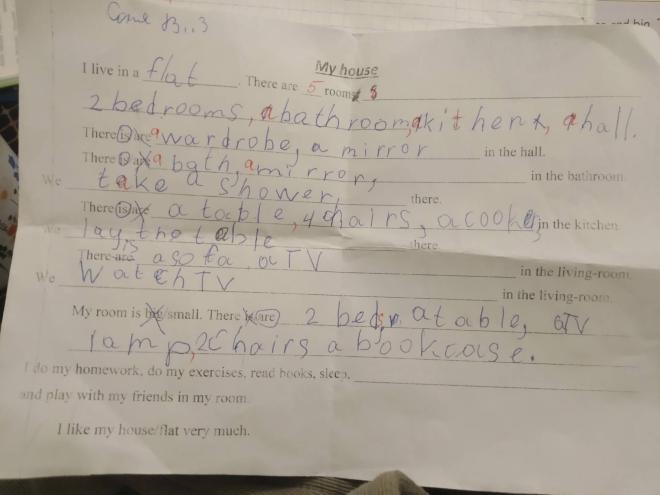 My house
I live in a flat. There are 5 rooms
2 bedrooms, a bathroom, a kitchen, a hall.
There is/are a wardrobe, a mirror in the hall.
There is/are a bath, a mirror, in the bathroom.
We take a shower, there.
There is/are a table, 4 chairs, a cooker, in the kitchen
We lay the table there.
There are is a sofa, a TV in the living-room.
We WatchTV in the living-room.
My room is big/small. There is/are 2 beds, a table, a TV
lamp, 2 chairs a bookcase.
I do my homework, do my exercises, read books, sleep,
and play with my friends in my room.
I like my house/flat very much.